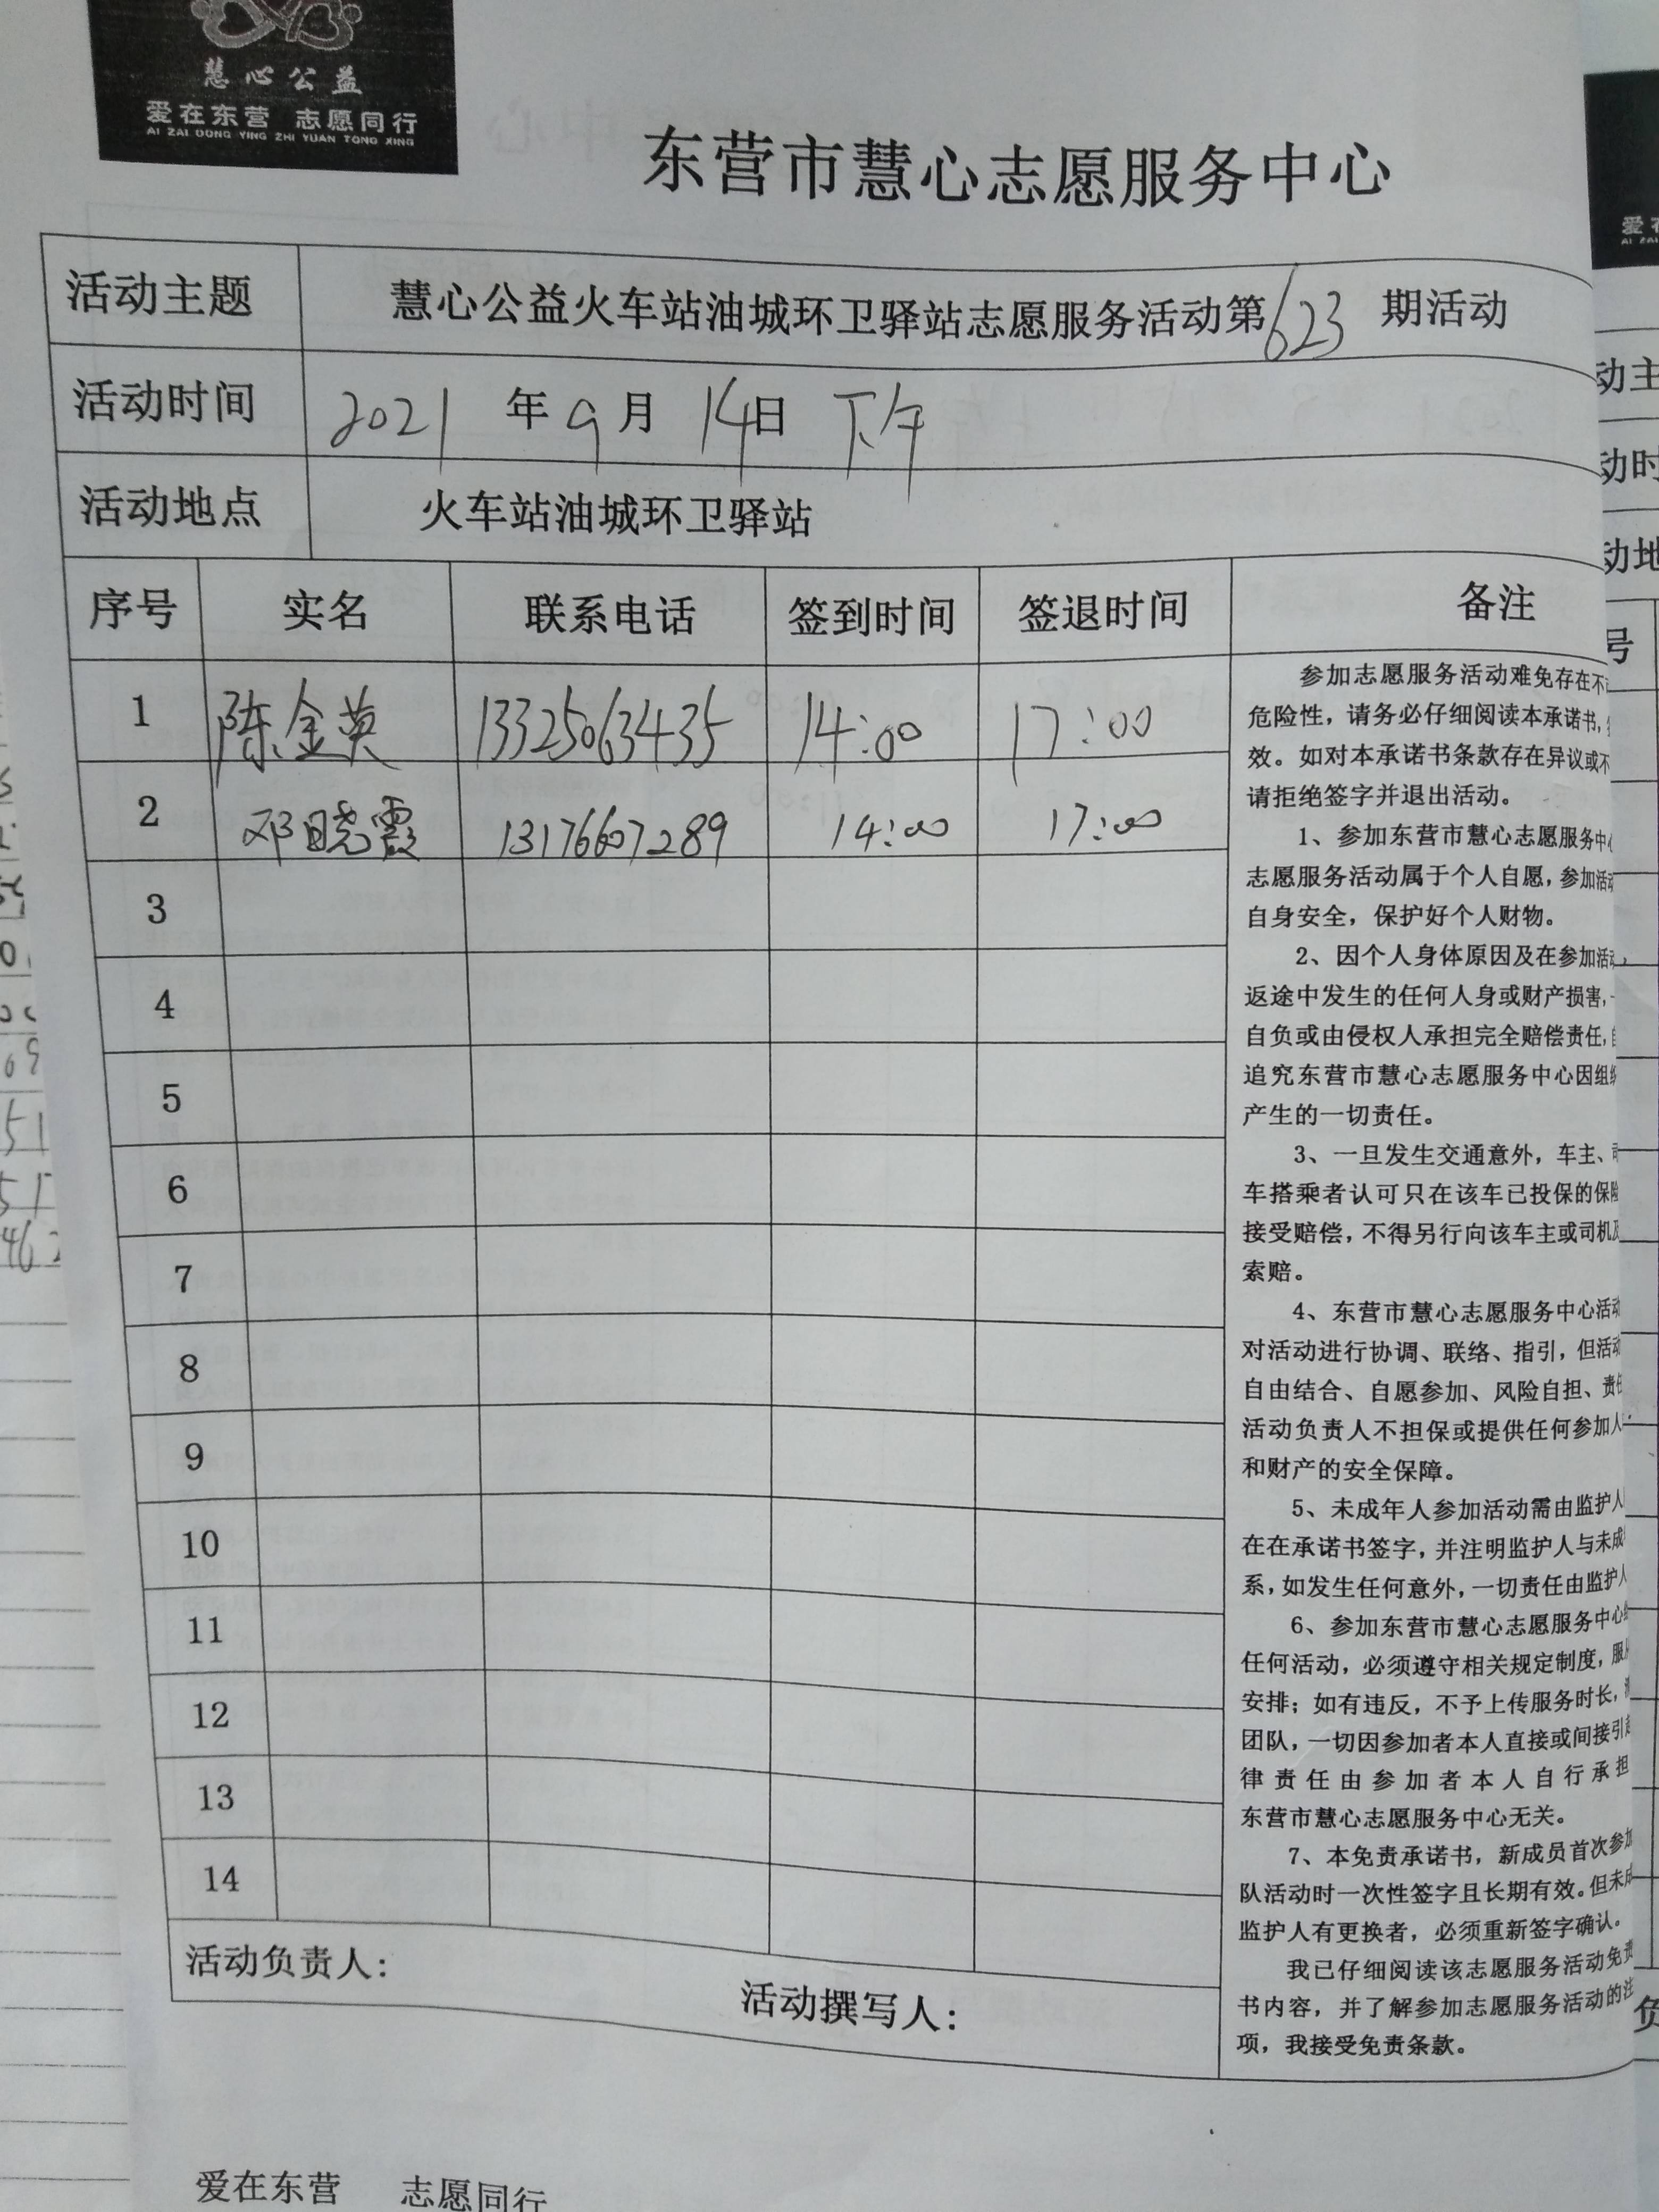 慧心公益
爱在东营 志愿同行
AI ZAI DONG YING ZHI YUAN TONG XING
东营市慧心志愿服务中心
活动主题 慧心公益火车站油城环卫驿站志愿服务活动第623期活动
活动时间 2021年9月14日 下午
活动地点 火车站油城环卫驿站
序号 实名 联系电话 签到时间 签退时间 备注
1 陈金英 13325063435 14:00 17:00
2 邓晓霞 13176607289 14:00 17:00
3
4
5
6
7
8
9
10
11
12
13
14
参加志愿服务活动难免存在不
危险性，请务必仔细阅读本承诺书，
效。如对本承诺书条款存在异议或不
请拒绝签字并退出活动。
1、参加东营市慧心志愿服务中
志愿服务活动属于个人自愿，参加活动
自身安全，保护好个人财物。
2、因个人身体原因及在参加活动
返途中发生的任何人身或财产损害，
自负或由侵权人承担完全赔偿责任，
追究东营市慧心志愿服务中心因组织
产生的一切责任。
3、一旦发生交通意外，车主、司
车搭乘者认可只在该车已投保的保险
接受赔偿，不得另行向该车主或司机及
索赔。
4、东营市慧心志愿服务中心活动
对活动进行协调、联络、指引，但活动
自由结合、自愿参加、风险自担、责任
活动负责人不担保或提供任何参加人
和财产的安全保障。
5、未成年人参加活动需由监护人
在在承诺书签字，并注明监护人与未成
系，如发生任何意外，一切责任由监护人
6、参加东营市慧心志愿服务中心
任何活动，必须遵守相关规定制度，服
安排；如有违反，不予上传服务时长，
团队，一切因参加者本人直接或间接引起
律责任由参加者本人自行承担
东营市慧心志愿服务中心无关。
7、本免责承诺书，新成员首次参加
队活动时一次性签字且长期有效。但未成
监护人有更换者，必须重新签字确认。
我已仔细阅读该志愿服务活动免责
书内容，并了解参加志愿服务活动的注
项，我接受免责条款。
活动负责人： 活动撰写人：
爱在东营 志愿同行